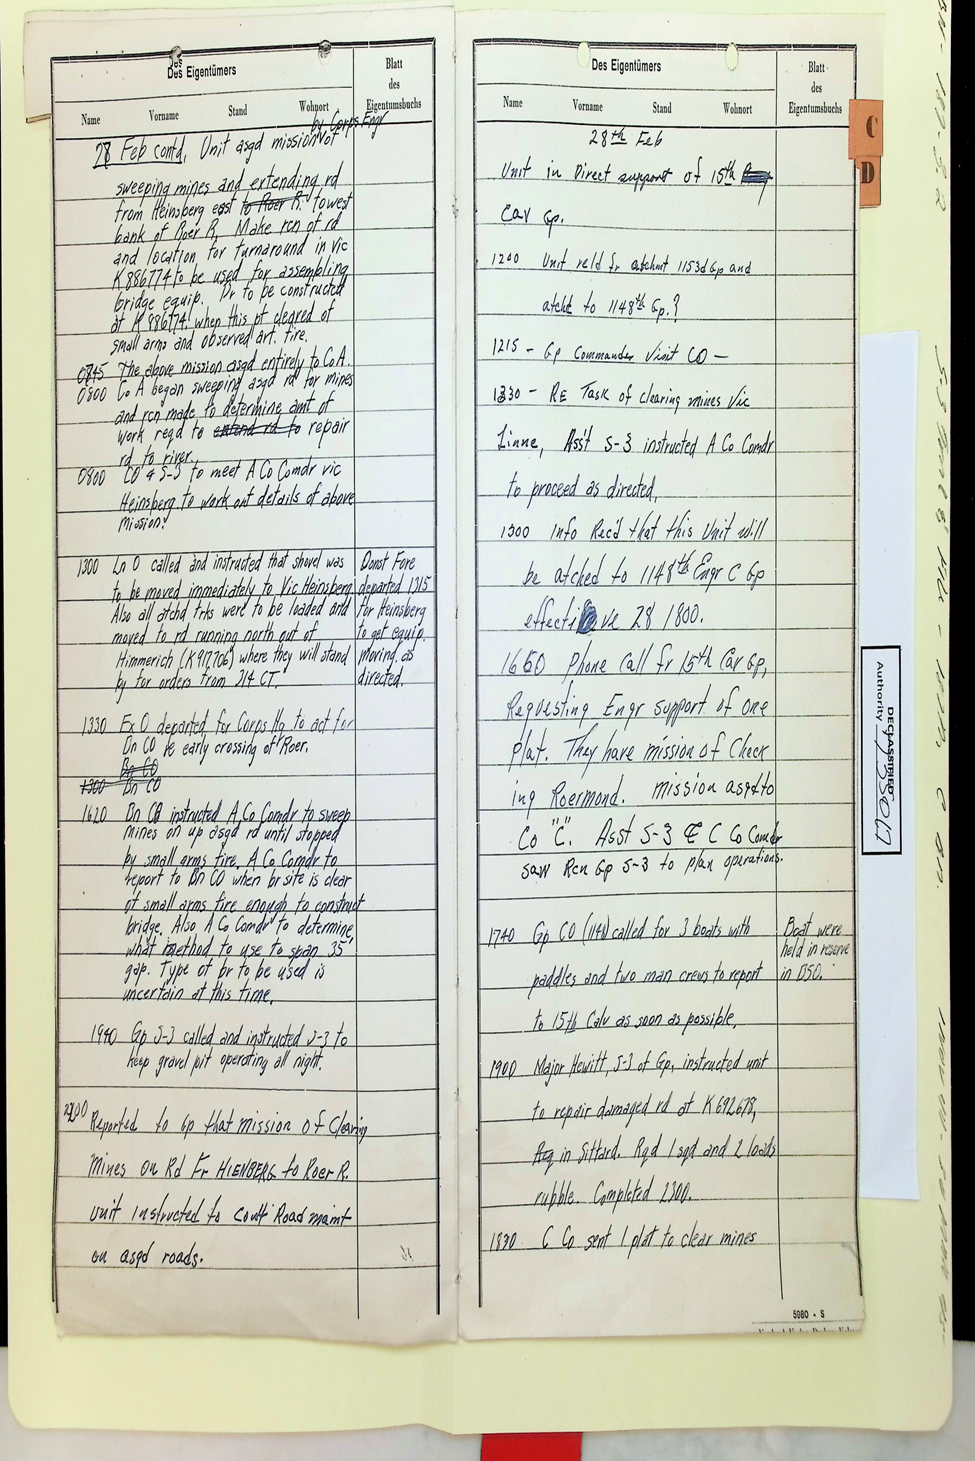 Des
Des Eigentümers
Blatt
des
Eigentumsbuchs
Name Vorname Stand Wohnort
by Corps Engr
28 Feb contd. Unit asgd mission of
sweeping mines and extending rd
from Heinsberg east to Roer R. to west
bank of Roer R. Make rcn of rd
and location for turnaround in vic
K886774 to be used for assembling
bridge equip. Br to be constructed
at K886774. when this pt cleared of
small arms and observed art. fire.
0745 The above mission asgd entirely to Co A.
0800 Co A began sweeping asgd rd for mines
and rcn made to determine amt of
work reqd to extend rd to repair
rd to river.
0800 CO & S-3 to meet A Co Comdr vic
Heinsberg to work out details of above
mission.
1300 Ln O called and instructed that shovel was
to be moved immediately to Vic Heinsberg
Also all atchd trks were to be loaded and
moved to rd running north out of
Himmerich (K917706) where they will stand
by for orders from 214 CT.
Const Fore
departed 1315
for Heinsberg
to get equip.
moving as
directed.
1330 Ex O departed for Corps Hq to act for
Bn CO re early crossing of Roer.
Bn CO
1300 Bn CO
1620 Bn CO instructed A Co Comdr to sweep
mines on up asgd rd until stopped
by small arms fire. A Co Comdr to
report to Bn CO when br site is clear
of small arms fire enough to construct
bridge. Also A Co Comdr to determine
what method to use to span 35'
gap. Type of br to be used is
uncertain at this time.
1940 Gp S-3 called and instructed S-3 to
keep gravel pit operating all night.
Reported to Gp that mission of Clearing
mines on Rd Fr HIENBERG to Roer R.
unit instructed to Cont Road maint
on asgd roads.
Des Eigentümers
Blatt
des
Eigentumsbuchs
Name Vorname Stand Wohnort
28th Feb
Unit in Direct support of 15th
Cav Gp.
1200 Unit reld fr atchmt 1153d Gp and
atchd to 1148th Gp.?
1215 - Gp Commander Visit CO -
1330 - RE Task of clearing mines Vic
Linne, Ass't S-3 instructed A Co Comdr
to proceed as directed.
1500 Info Rec'd that this Unit will
be atched to 1148th Engr C Gp
effective 28 1800.
1650 Phone Call fr 15th Cav Gp,
Requesting Engr support of One
plat. They have mission of Check
ing Roermond. mission asgd to
Co "C". Asst S-3 & C Co Comdr
saw Rcn Gp S-3 to plan operations.
1740 Gp CO (1148) called for 3 boats with
paddles and two man crews to report
to 15th Calv as soon as possible.
Boat were
held in reserve
in DSO.
1900 Major Hewitt, S-3 of Gp, instructed unit
to repair damaged rd at K692678,
in Sittard. Rqd 1 sqd and 2 loads
rubble. Completed 2300.
1830 C Co sent 1 plat to clear mines
5980 - S
C
D
DECLASSIFIED
Authority